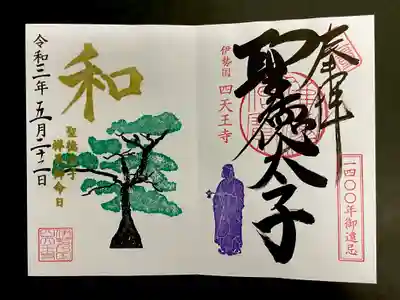 奉拝
聖徳太子
伊勢国 四天王寺
一四〇〇年御遠忌
和
聖徳太子
令和三年五月二十二日